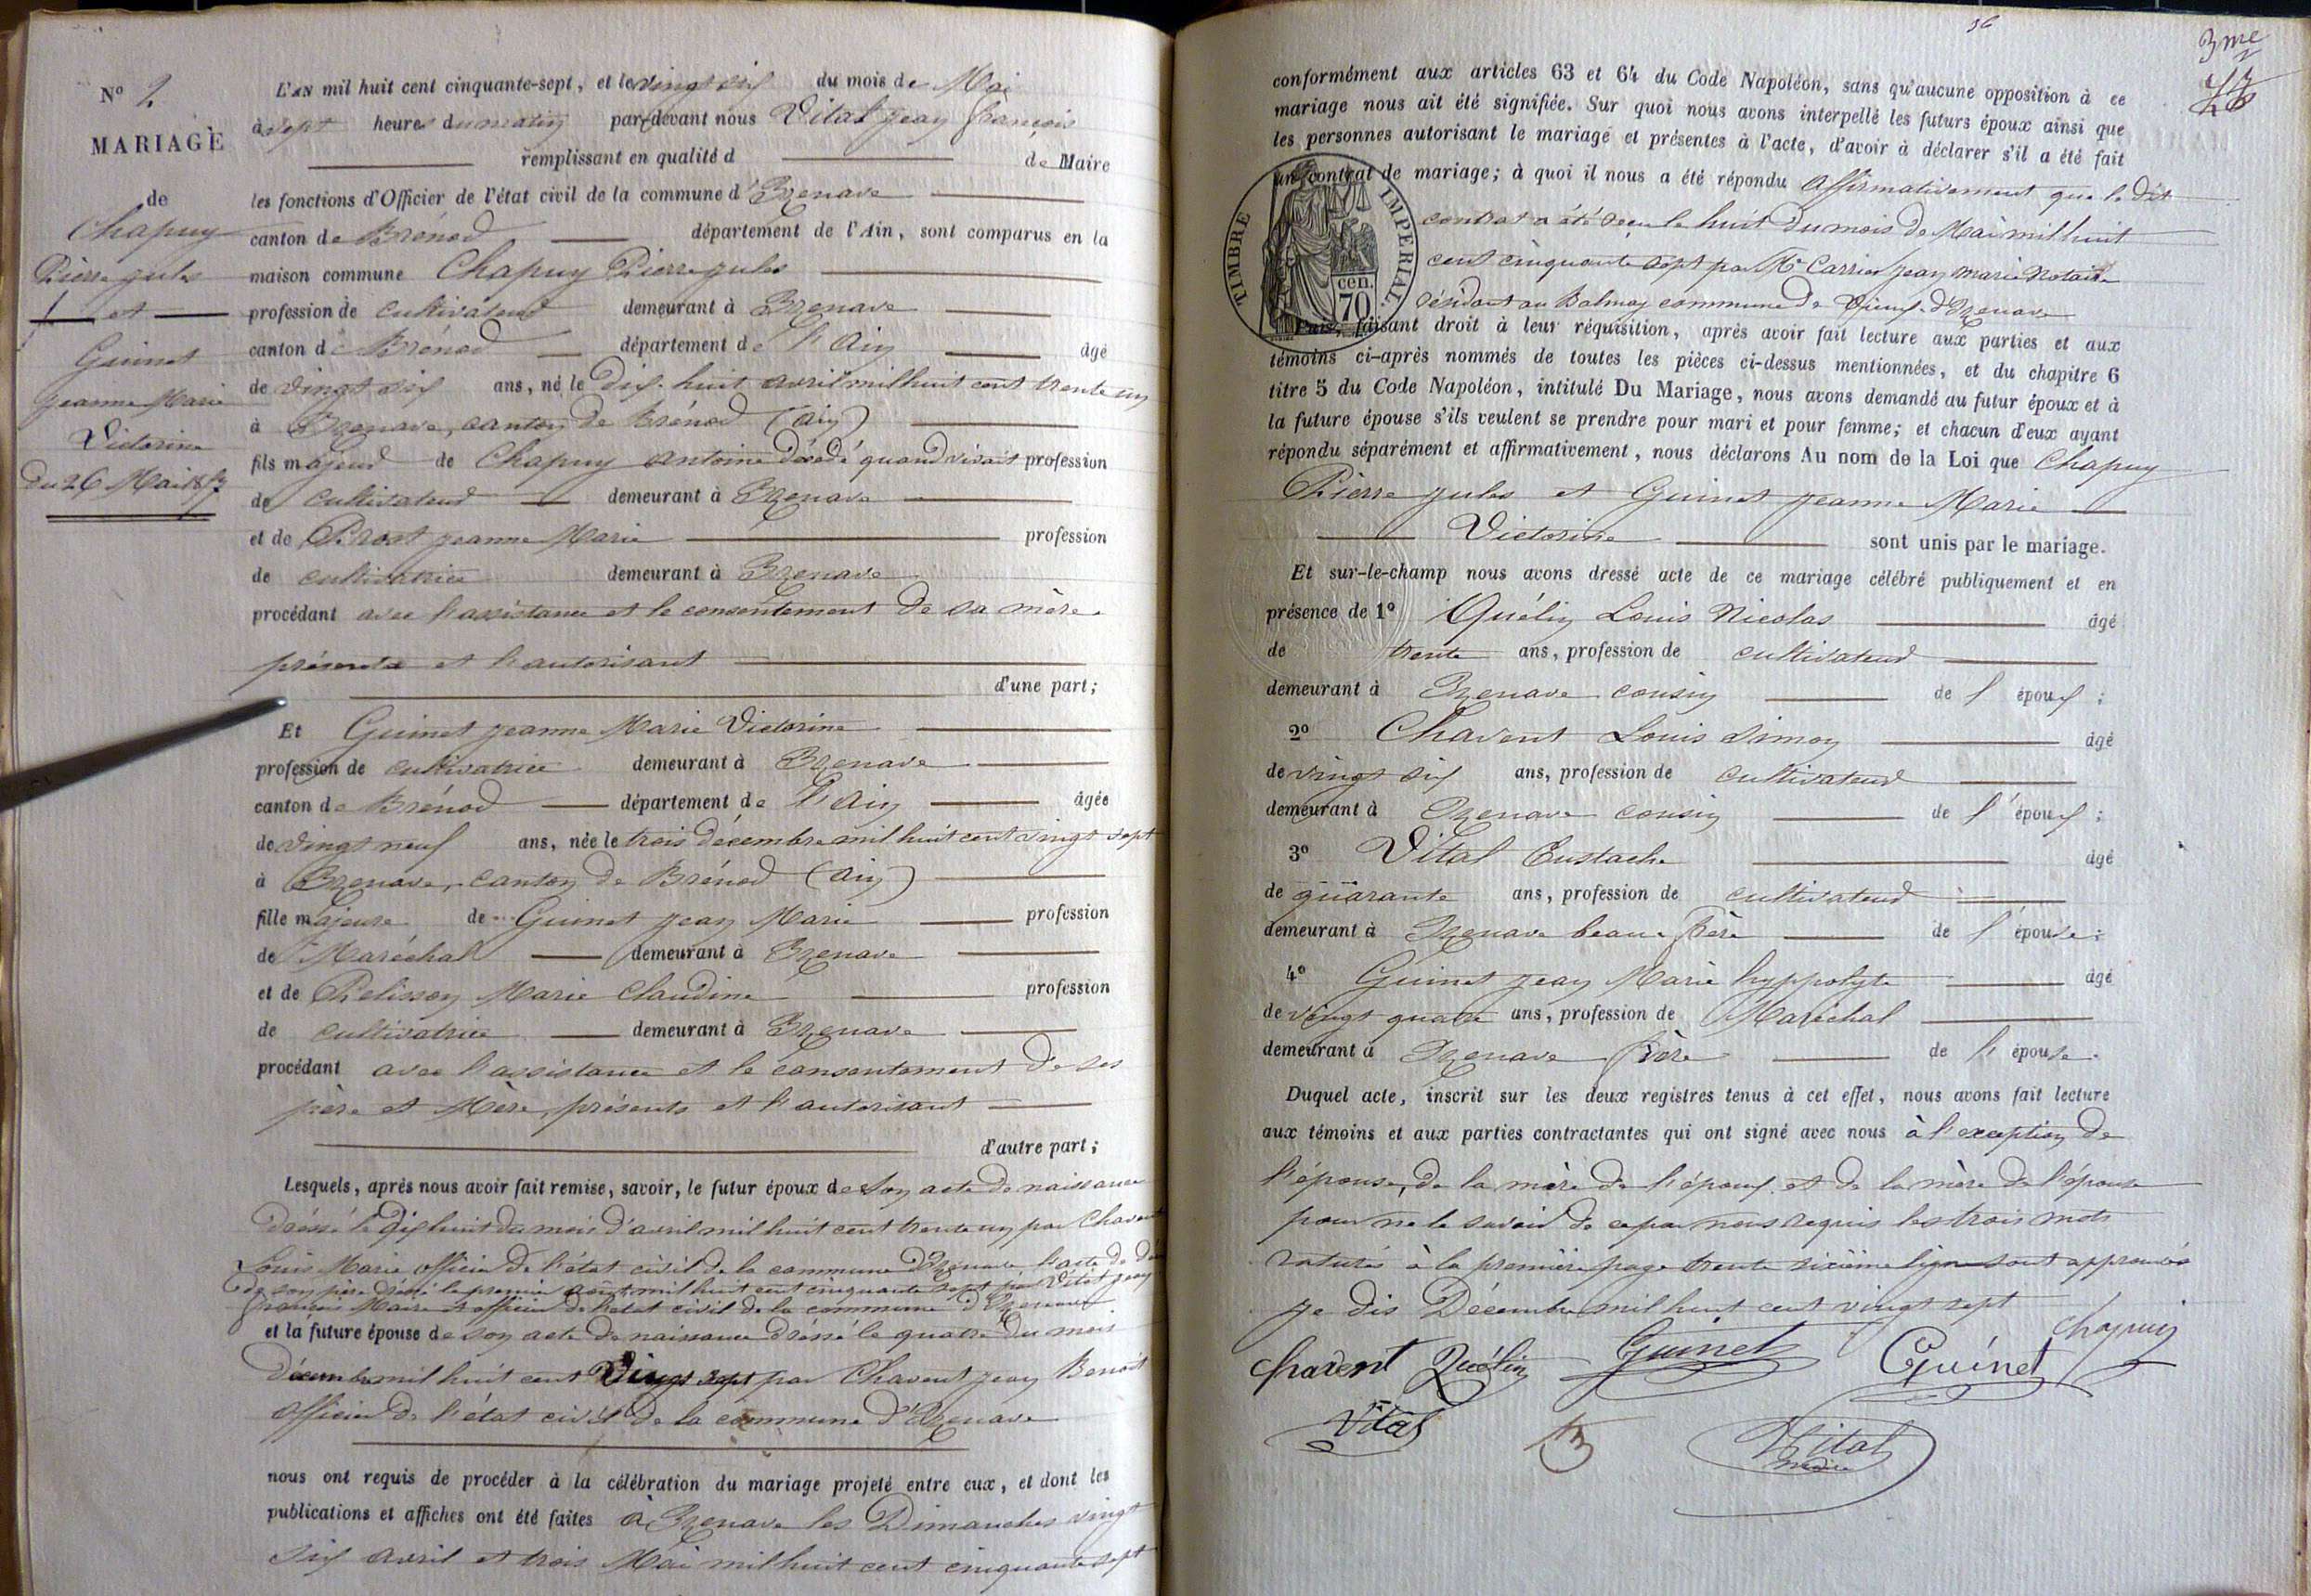 N° 2
MARIAGE
de
Chapuy
Pierre jules
et
Guinet
jeanne Marie
Victorine
du 26 Mai 1857
L'AN mil huit cent cinquante-sept, et le vingt six du mois de Mai
à sept heures du matin par-devant nous Vital jean françois
remplissant en qualité d de Maire
les fonctions d'Officier de l'état civil de la commune d'Izenave
canton de Brénod département de l'Ain, sont comparus en la
maison commune Chapuy Pierre jules
profession de cultivateur demeurant à Izenave
canton de Brénod département de l'ain âgé
de vingt six ans, né le dix-huit avril mil huit cent trente un
à Izenave, canton de Brénod (ain)
fils majeur de Chapuy antoine décédé quand vivait profession
de cultivateur demeurant à Izenave
et de Prost jeanne Marie profession
de cultivatrice demeurant à Izenave
procédant avec l'assistance et le consentement de sa mère.
présente et l'autorisant
d'une part;
Et Guinet jeanne Marie Victorine
profession de cultivatrice demeurant à Izenave
canton de Brénod département de l'ain âgée
de vingt neuf ans, née le trois décembre mil huit cent vingt sept
à Izenave, canton de Brénod (ain)
fille majeure de Guinet jean Marie profession
de Maréchal demeurant à Izenave
et de Pelisson Marie Claudine profession
de cultivatrice demeurant à Izenave
procédant avec l'assistance et le consentement de ses
père et Mère, présents et l'autorisant
d'autre part;
Lesquels, après nous avoir fait remise, savoir, le futur époux de son acte de naissance
dréssé le dix huit du mois d'avril mil huit cent trente un par Chavent
Louis Marie officier de l'état civil de la commune d'Izenave l'acte de
de son père dréssé le premier août mil huit cent cinquante par Vital jean
françois Maire et officier de l'état civil de la commune d'Izenave
et la future épouse de son acte de naissance dréssé le quatre du mois
décembre mil huit cent Vingt sept par Chavent jean Benoit
officier de l'état civil de la commune d'Izenave
nous ont requis de procéder à la célébration du mariage projeté entre eux, et dont les
publications et affiches ont été faites à Izenave les Dimanches vingt
six avril et trois Mai mil huit cent cinquante sept
36
3me
conformément aux articles 63 et 64 du Code Napoléon, sans qu'aucune opposition à ce
mariage nous ait été signifiée. Sur quoi nous avons interpellé les futurs époux ainsi que
les personnes autorisant le mariage et présentes à l'acte, d'avoir à déclarer s'il a été fait
un contrat de mariage; à quoi il nous a été répondu affirmativement que le dit
contrat a été reçu le huit du mois de Mai mil huit
cent cinquante sept par Me Carrier jean marie Notaire
résidant au Balmay commune de Vieux-d'Izenave
TIMBRE IMPÉRIAL.
cen.
70
Puis, faisant droit à leur réquisition, après avoir fait lecture aux parties et aux
témoins ci-après nommés de toutes les pièces ci-dessus mentionnées, et du chapitre 6
titre 5 du Code Napoléon, intitulé Du Mariage, nous avons demandé au futur époux et à
la future épouse s'ils veulent se prendre pour mari et pour femme; et chacun d'eux ayant
répondu séparément et affirmativement, nous déclarons Au nom de la Loi que Chapuy
Pierre jules et Guinet jeanne Marie
Victorine sont unis par le mariage.
Et sur-le-champ nous avons dressé acte de ce mariage célébré publiquement et en
présence de 1° Quélin Louis Nicolas âgé
de trente ans, profession de cultivateur
demeurant à Izenave cousin de l'époux;
2° Chavent Louis Simon âgé
de vingt six ans, profession de cultivateur
demeurant à Izenave cousin de l'époux;
3° Vital Eustache âgé
de quarante ans, profession de cultivateur
demeurant à Izenave beau-frère de l'épouse;
4° Guinet jean Marie hyppolyte âgé
de vingt quatre ans, profession de Maréchal
demeurant à Izenave frère de l'épouse.
Duquel acte, inscrit sur les deux registres tenus à cet effet, nous avons fait lecture
aux témoins et aux parties contractantes qui ont signé avec nous à l'exception de
l'épouse, de la mère de l'époux et de la mère de l'épouse
pour ne le savoir de ce par nous requis les trois mots
raturés à la première page trente sixième ligne sont approuvés
je dis Décembre mil huit cent vingt sept
chapuy
chavent Quélin Guinet Guinet
Vital Vital
maire